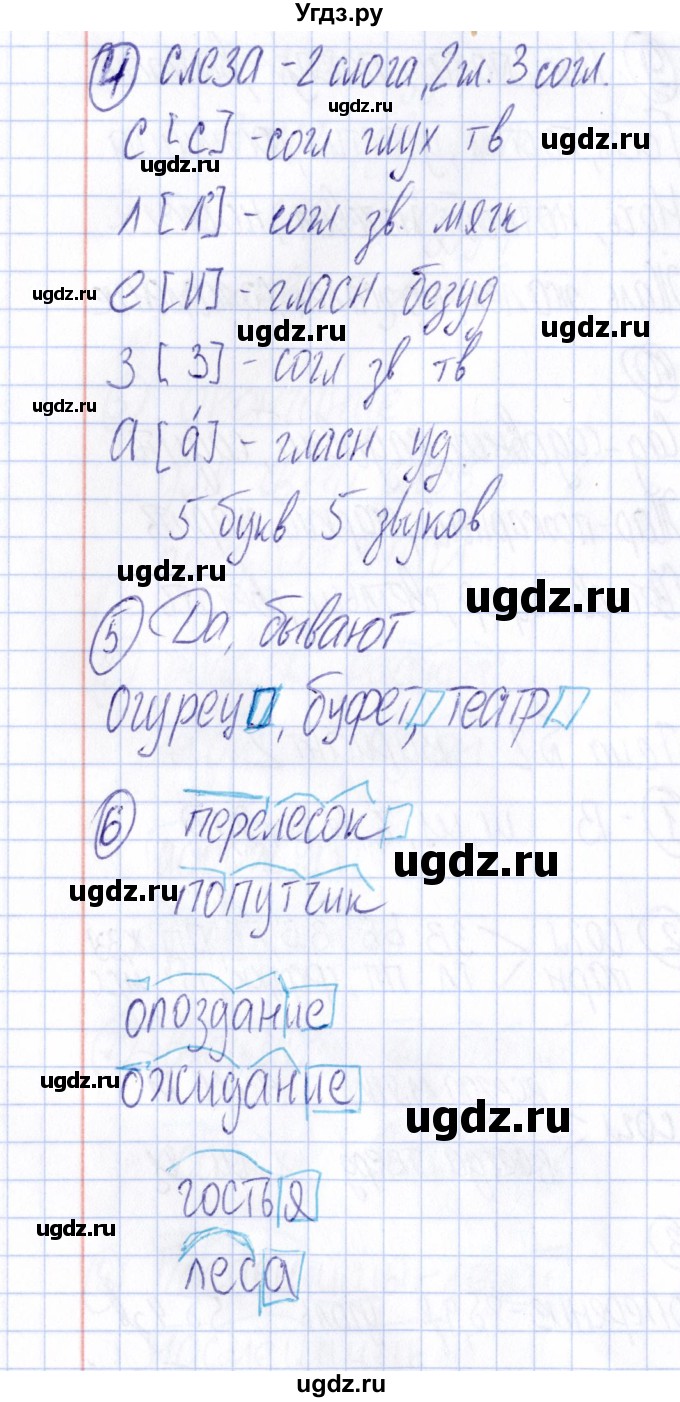 Угдз.ру
4 слеза - 2 слога, 2 гл. 3 согл.
ugdz.ru
с [с] - согл глух тв
ugdz.ru
ugdz.ru
л [л'] - согл зв. мягк
ugdz.ru
е [и] - гласн безуд
ugdz.ru
ugdz.ru
з [з] - согл зв тв
ugdz.ru
а [á] - гласн уд.
5 букв 5 звуков
ugdz.ru
ugdz.ru
5 Да, бывают
огурец, буфет, театр
6 перелесок
ugdz.ru
ugdz.ru
попутчик
опоздание
ugdz.ru
ожидание
ugdz.ru
гостья
ugdz.ru
леса
ugdz.ru